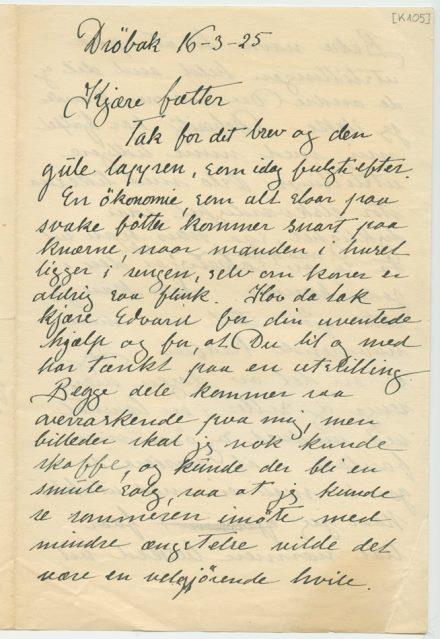 [K105]
Dröbak 16-3-25
Kjære fætter
Tak for det brev og den
gule lappen, som idag fulgte efter.
En ökonomi, som alt staar paa
svake føtter kommer snart paa
knærne, naar manden i huset
ligger i sengen, selv om konen er
aldrig saa flink. Hav da tak
kjære Edvard for din uventede
hjælp og for, at Du til og med
har tænkt paa en utstilling
Begge dele kommer saa
overraskende paa mig, men
billeder skal jeg nok kunde
skaffe, og kunde der bli en
smule salg, saa at jeg kunde
se sommeren imöte med
mindre ængstelse vilde det
være en velgjørende hvile.